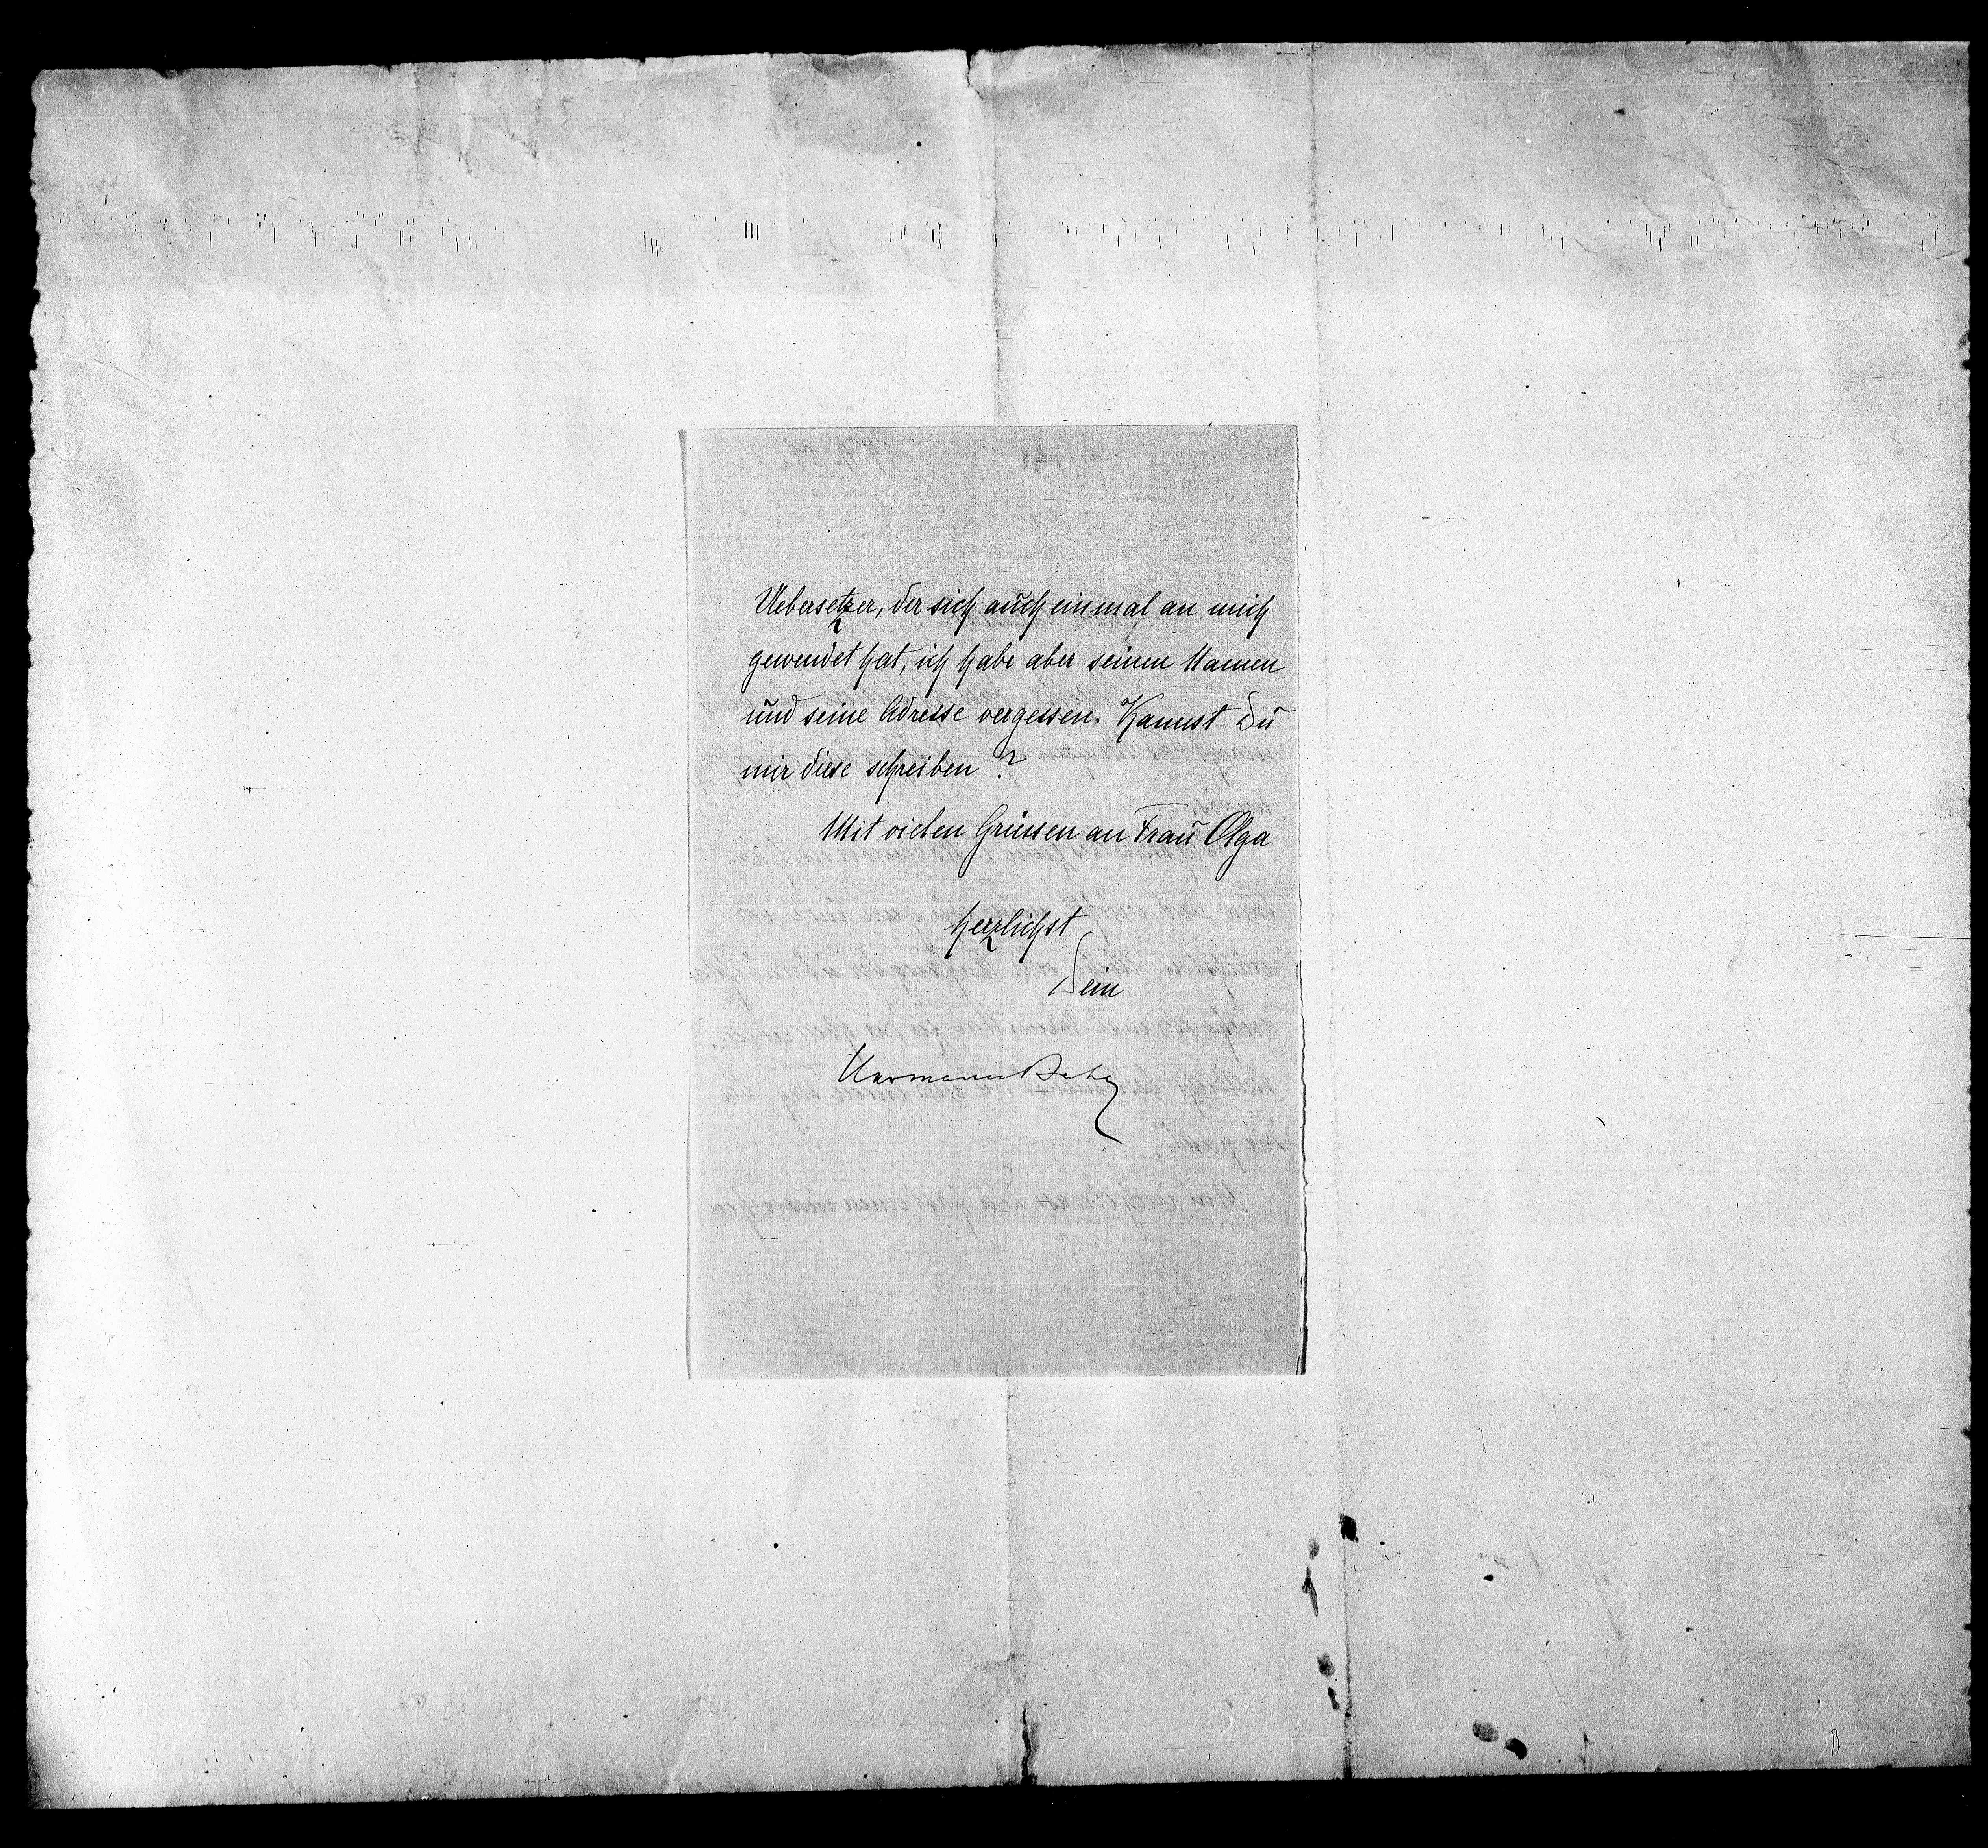 Uebersetzer, der sich auch einmal an mich
gewendet hat, ich habe aber seinen Namen
und seine Adresse vergessen. Kannst Du
mir diese schreiben?
Mit vielen Grüssen an Frau Olga
herzlichst
Dein
Hermann Bahr